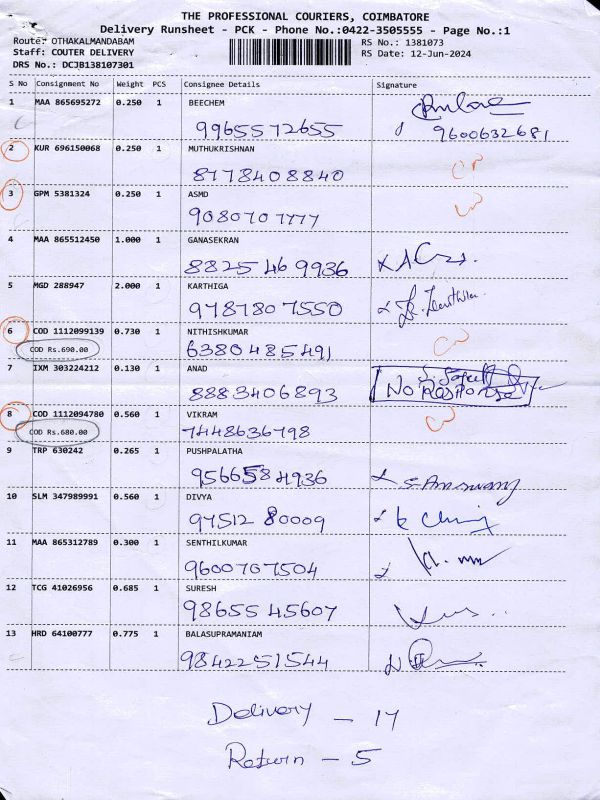 THE PROFESSIONAL COURIERS, COIMBATORE
Delivery Runsheet - PCK - Phone No.:0422-3505555 - Page No.:1
Route: OTHAKALMANDABAM RS No.: 1381073
Staff: COUTER DELIVERY RS Date: 12-Jun-2024
DRS No.: DCJB138107301
S No Consignment No Weight PCS Consignee Details Signature
1 MAA 865695272 0.250 1 BEECHEM
9965572655 9600632681
2 KUR 696150068 0.250 1 MUTHUKRISHNAN
8778408840
3 GPM 5381324 0.250 1 ASMD
9080707777
4 MAA 865512450 1.000 1 GANASEKRAN
8825469936
5 MGD 288947 2.000 1 KARTHIGA
9787807550
6 COD 1112099139 0.730 1 NITHISHKUMAR
COD Rs.690.00 6380485491
7 IXM 303224212 0.130 1 ANAD
8883406893 No Response
8 COD 1112094780 0.560 1 VIKRAM
COD Rs.680.00 7448636798
9 TRP 630242 0.265 1 PUSHPALATHA
9566584936
10 SLM 347989991 0.560 1 DIVYA
9751280009
11 MAA 865312789 0.300 1 SENTHILKUMAR
9600707504
12 TCG 41026956 0.685 1 SURESH
9865545607
13 HRD 64100777 0.775 1 BALASUPRAMANIAM
9842251544
Delivery - 17
Return - 5